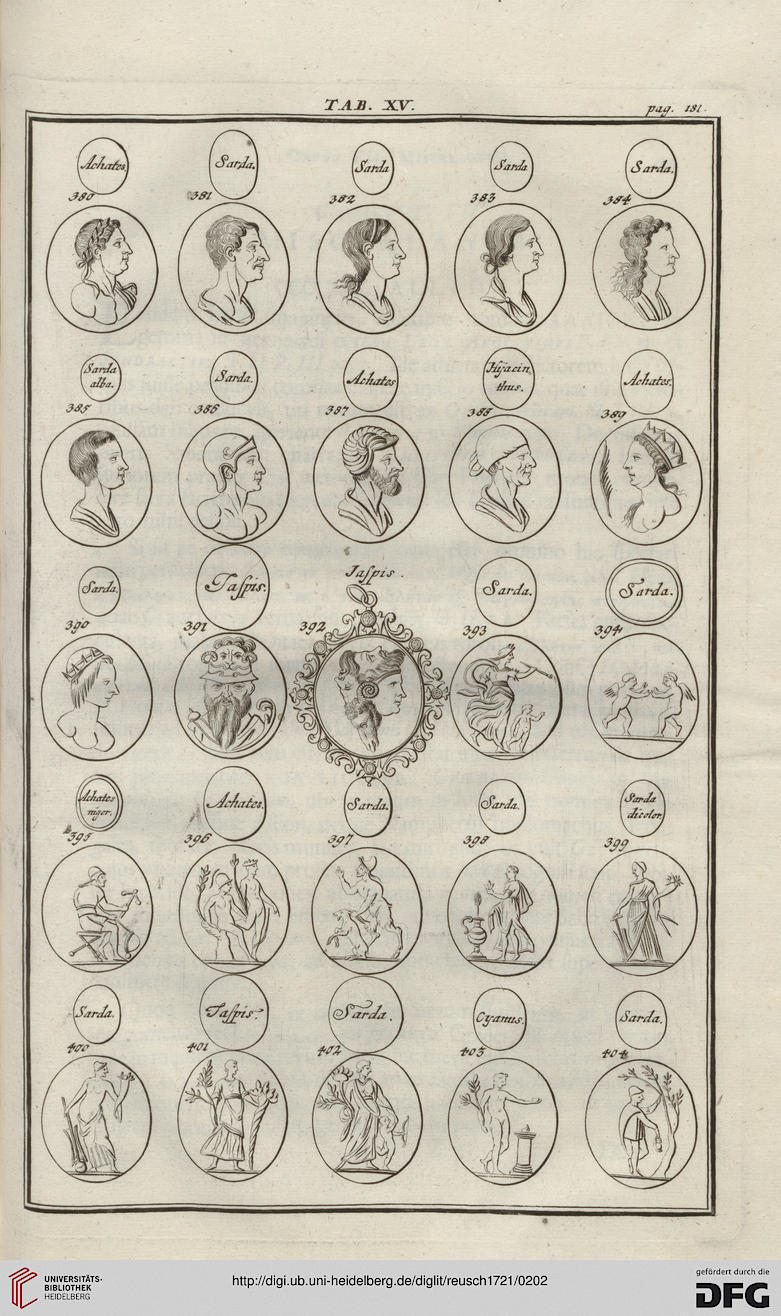 TAB. XV.
pag. 181.
Achates.
Sarda.
Sarda
Sarda
Sarda.
380
381
382
383
384
Sarda
alba.
Sarda.
Achates
Hijacin
thus.
Achates.
385
386
387
388
389
Sarda.
Jaſpis.
Jaſpis.
Sarda.
Sarda.
390
391
392
393
394
Achates
niger.
Achates.
Sarda.
Sarda.
Sarda
dicolor.
395
396
397
398
399
Sarda.
Jaſpis.
Sarda.
Cyanus.
Sarda.
400
401
402
403
404
UNIVERSITÄTS-
BIBLIOTHEK
HEIDELBERG
http://digi.ub.uni-heidelberg.de/diglit/reusch1721/0202
gefördert durch die
DFG